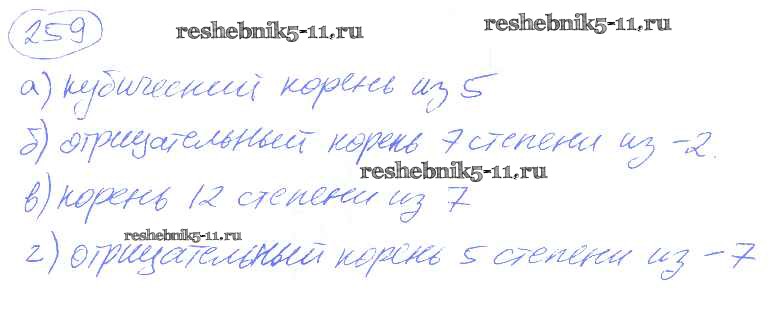 259 reshebnik5-11,ru reshebnik5-11,ru
а) кубический корень из 5
б) отрицательный корень 7 степени из -2.
reshebnik5-11,ru
в) корень 12 степени из 7
reshebnik5-11.ru
г) отрицательный корень 5 степени из -7